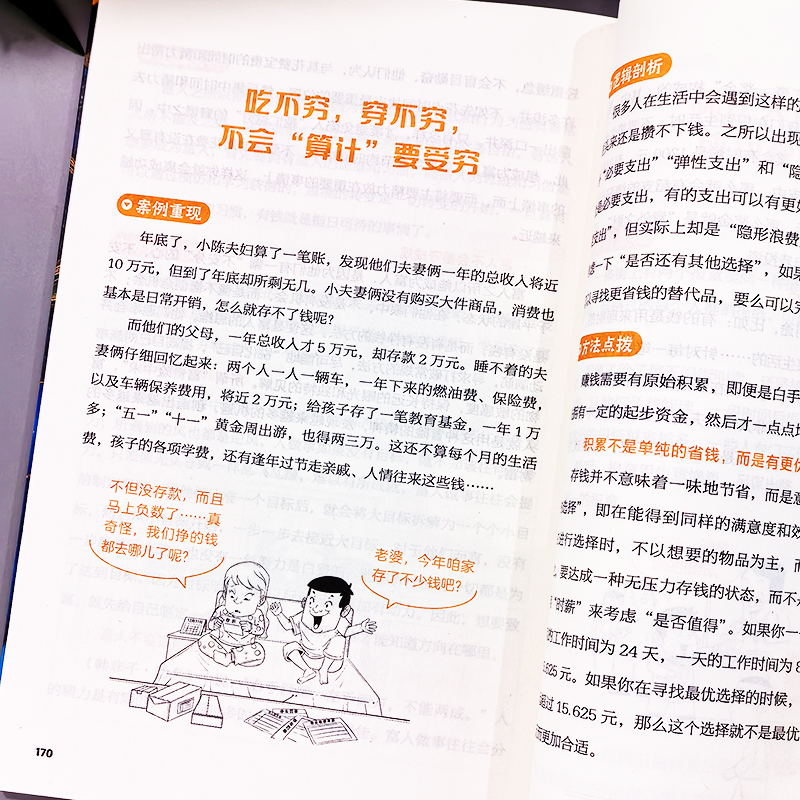 吃不穷，穿不穷，
不会“算计”要受穷
案例重现
年底了，小陈夫妇算了一笔账，发现他们夫妻俩一年的总收入将近
10 万元，但到了年底却所剩无几。小夫妻俩没有购买大件商品，消费也
基本是日常开销，怎么就存不了钱呢？
而他们的父母，一年总收入才 5 万元，却存款 2 万元。睡不着的夫
妻俩仔细回忆起来：两个人一人一辆车，一年下来的燃油费、保险费，
以及车辆保养费用，将近 2 万元；给孩子存了一笔教育基金，一年 1 万
多；“五一”“十一”黄金周出游，也得两三万。这还不算每个月的生活
费，孩子的各项学费，还有逢年过节走亲戚、人情往来这些钱……
不但没存款，而且
马上负数了……真
奇怪，我们挣的钱
都去哪儿了呢？
老婆，今年咱家
存了不少钱吧？
170
逻辑剖析
很多人在生活中会遇到这样的
来还是攒不下钱。之所以出现
“必要支出”“弹性支出”和“隐
是必要支出，有的支出可以有更
支出”，但实际上却是“隐形浪费
一下“是否还有其他选择”，如果
以寻找更省钱的替代品，要么可以
方法点拨
赚钱需要有原始积累，即便是白手
有一定的起步资金，然后才一点点
积累不是单纯的省钱，而是有更
存钱并不意味着一味地节省，而是
选择”，即在能得到同样的满意度和效
进行选择时，不以想要的物品为主，而
要达成一种无压力存钱的状态，而不
“时薪”来考虑“是否值得”。如果你一
的工作时间为 24 天，一天的工作时间为 8
5.625 元。如果你在寻找最优选择的时候，
超过 15.625 元，那么这个选择就不是最优
更加合适。